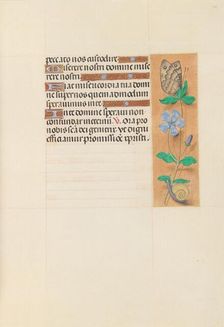 peccato nos custodire.
Miserere nostri domine mise
rere nostri.
Fiat misericordia tua domi
ne super nos quem admodum
speravimus in te.
In te domine speravi non
confundar in eternum. V. Ora pro
nobis sancta dei genitrix. Ut digni
efficiamur promissione xpristi.